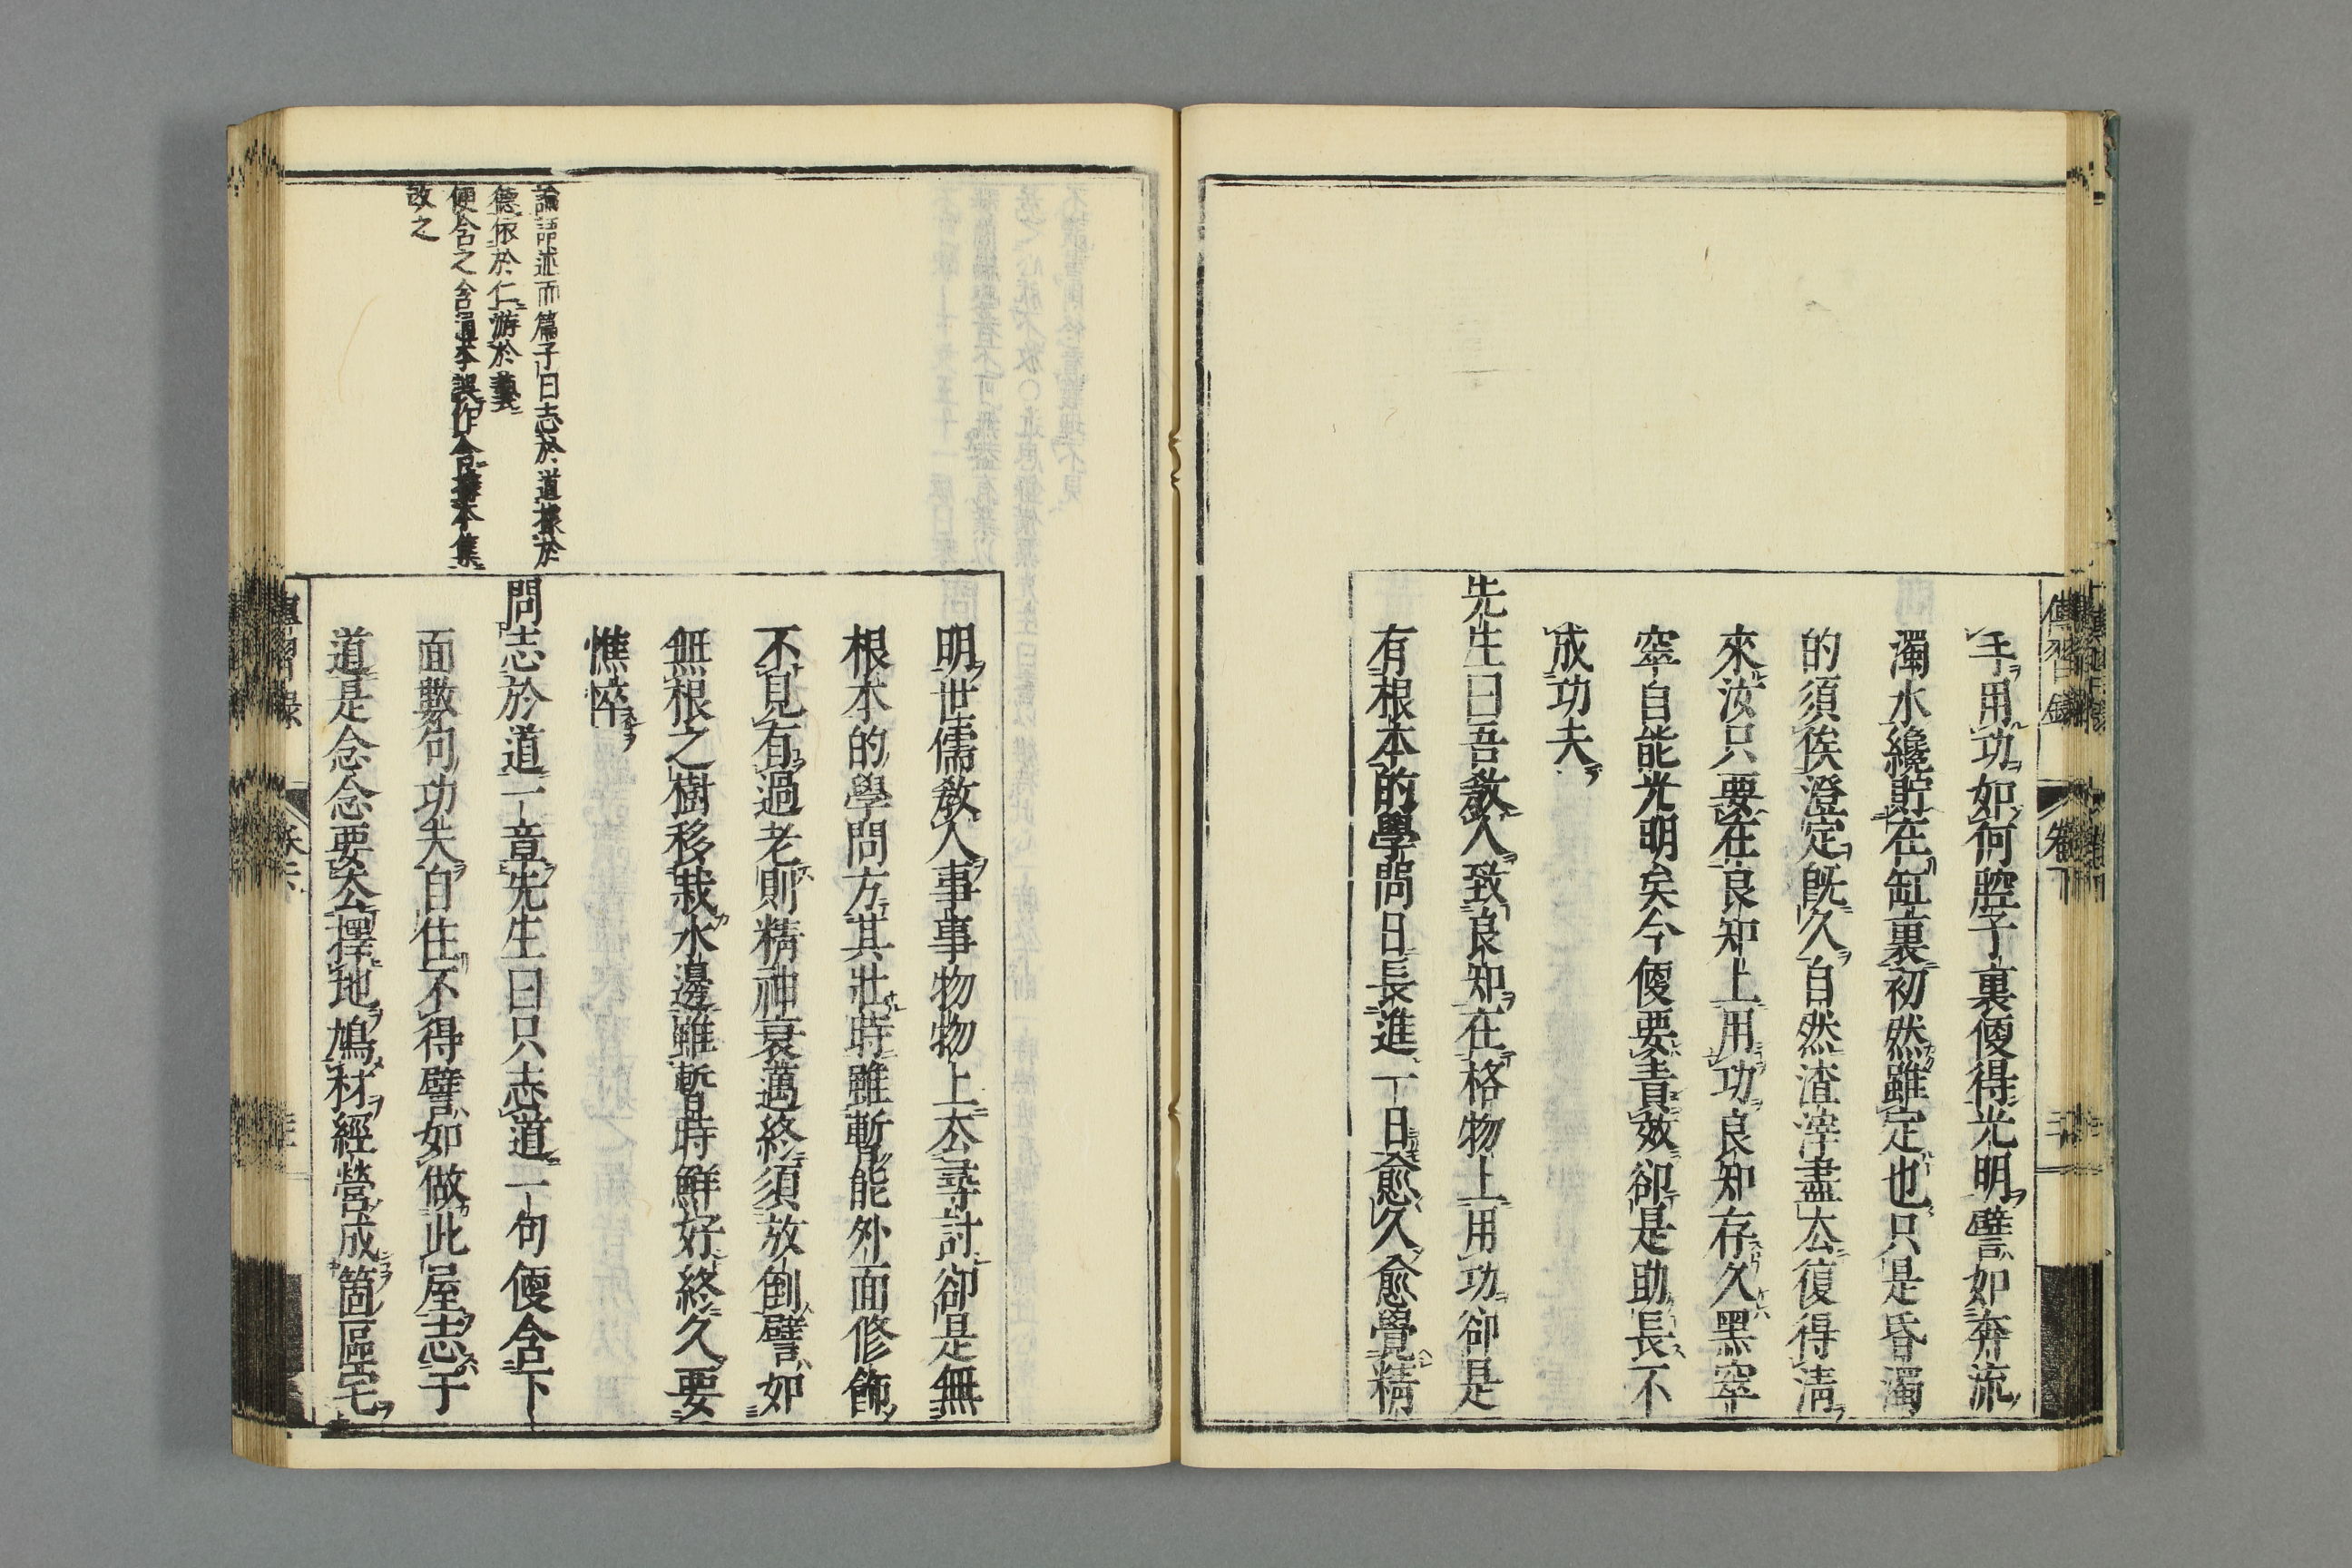 手用功如何腔子裏便得光明譬如奔流
濁水纔貯在缸裏初然雖定也只是昏濁
的須俟澄定既久自然渣滓盡厺復得淸
來汝只要在良知上用功良知存久黑窣
窣自能光明矣今便要責效卻是助長不
成功夫
先生曰吾敎人致良知在格物上用功卻是
有根本的學問日長進一日愈久愈覺精
明世儒敎人事事物物上厺尋討卻是無
根本的學問方其壯時雖暫能外面修飾
不見有過老則精神衰邁終須放倒譬如
無根之樹移栽水邊雖暫時鮮好終久要
憔悴
問志於道一章先生曰只志道一句便含下
面數句功夫自住不得譬如做此屋志于
道是念念要厺擇地鳩材經營成箇區宅
論語述而篇子曰志於道據於
德依於仁游於藝
便含之含通本誤作合據本集
改之
傳習錄
卷下